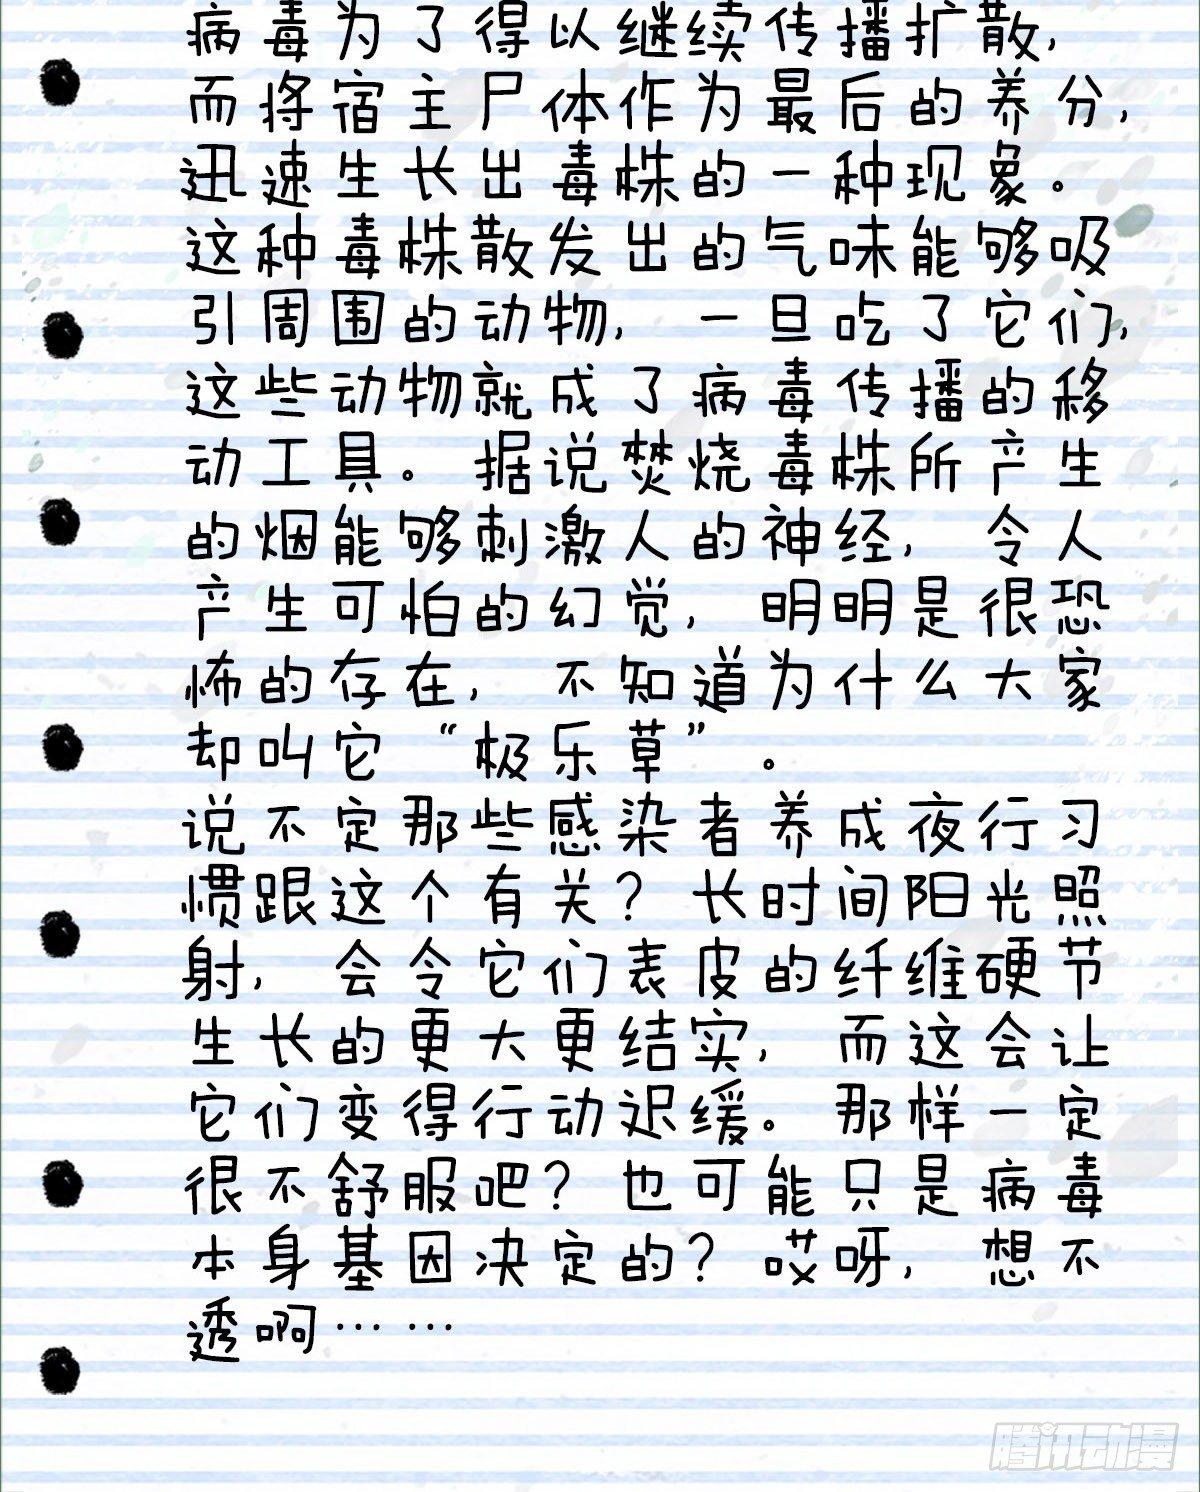 病毒为了得以继续传播扩散，
而将宿主尸体作为最后的养分，
迅速生长出毒株的一种现象。
这种毒株散发出的气味能够吸
引周围的动物，一旦吃了它们，
这些动物就成了病毒传播的移
动工具。据说焚烧毒株所产生
的烟能够刺激人的神经，令人
产生可怕的幻觉，明明是很恐
怖的存在，不知道为什么大家
却叫它“极乐草”。
说不定那些感染者养成夜行习
惯跟这个有关？长时间阳光照
射，会令它们表皮的纤维硬节
生长的更大更结实，而这会让
它们变得行动迟缓。那样一定
很不舒服吧？也可能只是病毒
本身基因决定的？哎呀，想不
透啊……
腾讯动漫